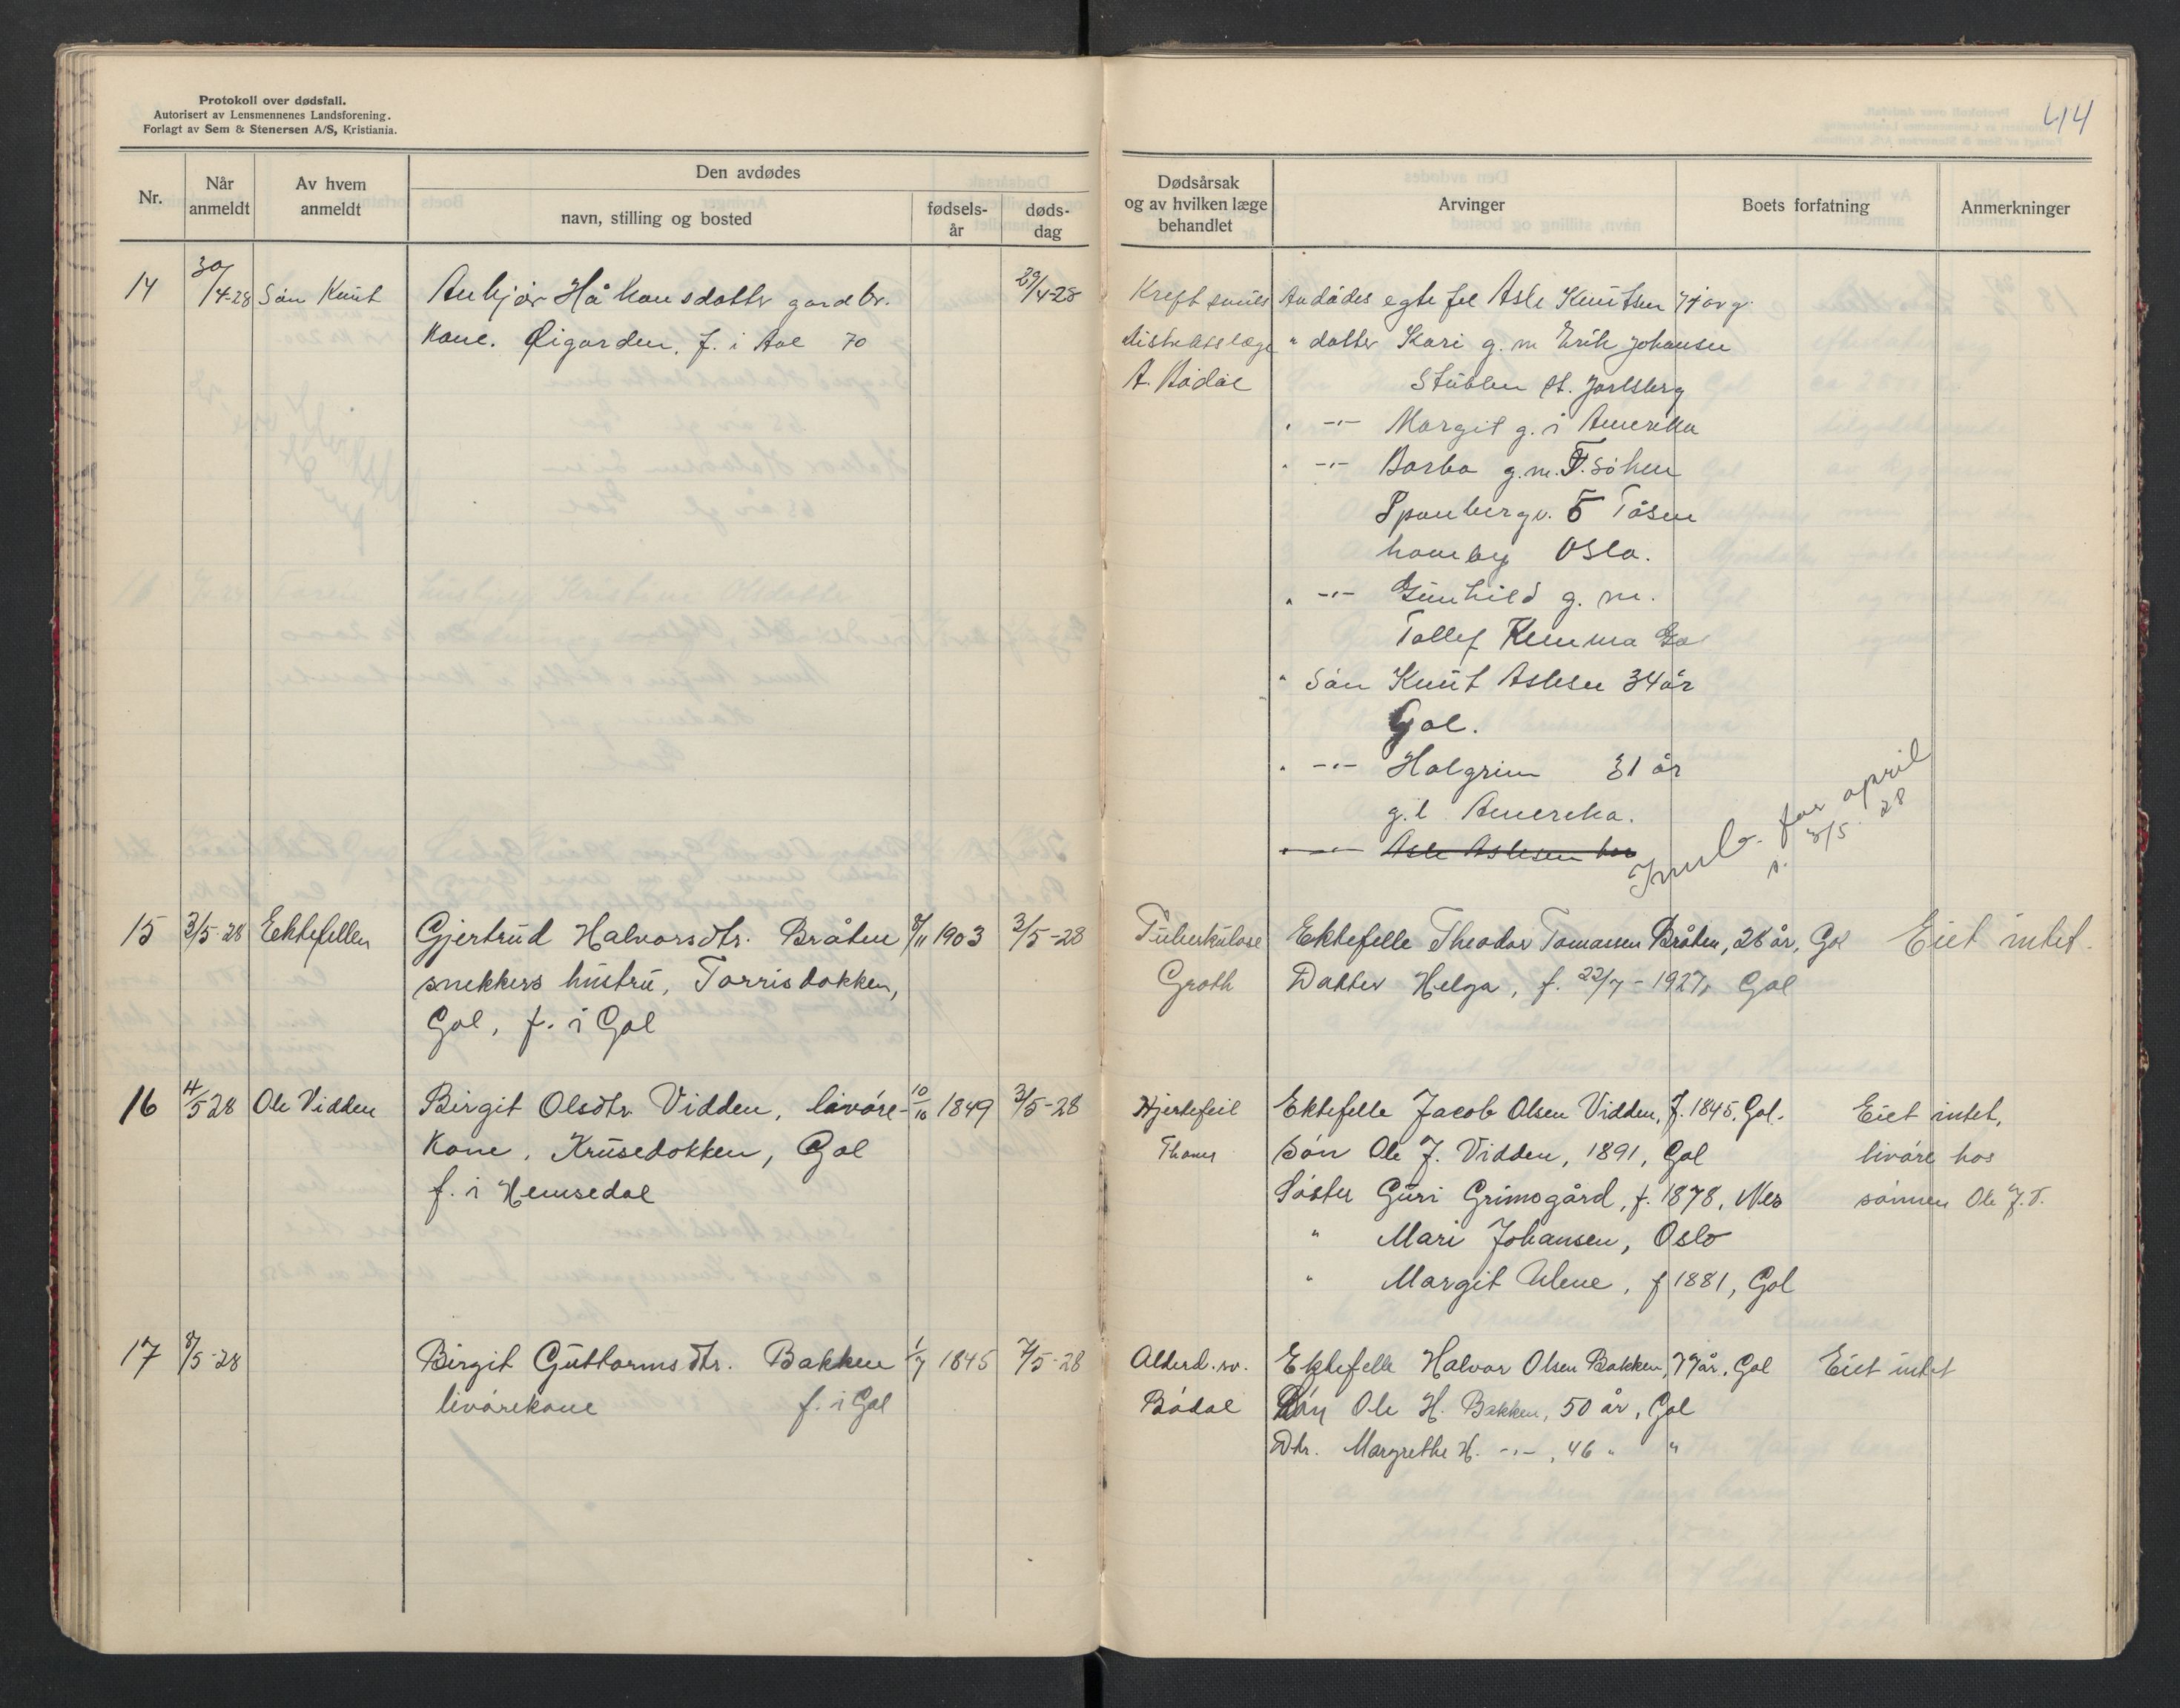 Protokoll over dødsfall.
Autorisert av Lensmennenes Landsforening.
Forlagt av Sem & Stenersen A/S, Kristiania.
44
Nr.
Når anmeldt
Av hvem anmeldt
Den avdødes
navn, stilling og bosted
fødsels-år
døds-dag
Dødsårsak og av hvilken læge behandlet
Arvinger
Boets forfatning
Anmerkninger
14 30/4-28 Søn Knut
Anbjør Håkonsdatter gardbr. 29/4-28
Kone. Øigarden. f. i Aal 70
Kreft
distriktslæge
A. Bødal
Avdødes egtefel Asle Knutsen 74 år g.
" datter Kari g. m Erik Johansen
Stublen st. Jarlsberg
" -"- Margit g. i Amerika
" -"- Barbo g.m. T. Sohen
Spanbergv. 5 Tåsen
haveby Oslo.
" -"- Gunhild g. m.
Tollef Gol
" Søn Knut Aslesen 34 år
Gol.
" -"- Halgrim 31 år
g. i Amerika.
Asle Aslesen
Innb. for april
s. 3/5 28
15 3/5-28 Ektefellen
Gjertrud Halvorsdtr. Bråten 8/11 1903 3/5-28
snekkers hustru, Torrisdokken,
Gol, f. i Gol
Tuberkulose
Groth
Ektefelle Theodor Tomassen Bråten, 28 år, Gol Eiet intet.
Datter Helga, f. 22/7-1927, Gol
16 4/5 28 Ole Vidden
Birgit Olsdtr. Vidden, livøre- 10/10 1849 3/5-28
Kone, Krusedokken, Gol
f. i Hemsedal
Hjertefeil
Thomes
Ektefelle Jacob Olsen Vidden, f. 1845, Gol. Eiet intet,
Søn Ole J. Vidden, 1891, Gol livøre hos
Søster Guri Grimsgård, f. 1878, Nes sønnen Ole J. V.
" Mari Johansen, Oslo
" Margit Ulene, f 1881, Gol
17 8/5-28
Birgit Guttormsdtr. Bakken 1/7 1845 7/5-28
livørekone f. i Gol
Alderd. sv.
Bødal
Ektefelle Halvor Olsen Bakken, 79 år, Gol Eiet intet
Søn Ole H. Bakken, 50 år, Gol
Dtr. Margrethe H. -"-, 46 " "